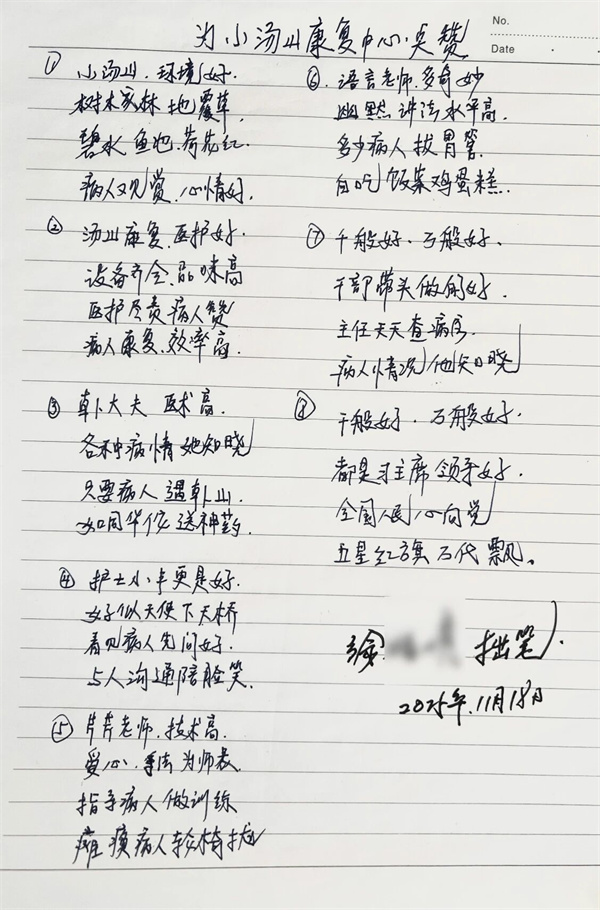 No.
Date
为小汤山康复中心点赞
① 小汤山.环境好.
树木成林地覆草,
碧水鱼池.荷花红.
病人观赏.心情好.
② 汤山康复.医护好.
设备齐全.品味高
医护尽责病人赞
病人康复.效率高.
③ 韩大夫 医术高.
各种病情她知晓
只要病人遇韩山
如同华佗送神药.
④ 护士小丰更是好.
好似天使下天桥
看见病人先问好.
与人沟通陪脸笑.
⑤ 芹芹老师.技术高.
爱心.手法为师表
指导病人做训练
瘫痪病人轮椅抛
⑥ 语言老师.多奇妙
幽默讲法水平高.
多少病人拔胃管.
自吃饭菜鸡蛋糕.
⑦ 千般好.万般好.
干部带头做的好.
主任天天查病房.
病人情况他知晓
⑧ 千般好.万般好.
都是习主席领导好.
全国人民心向党
五星红旗万代飘。
徐 拙笔.
2025年.11月18日